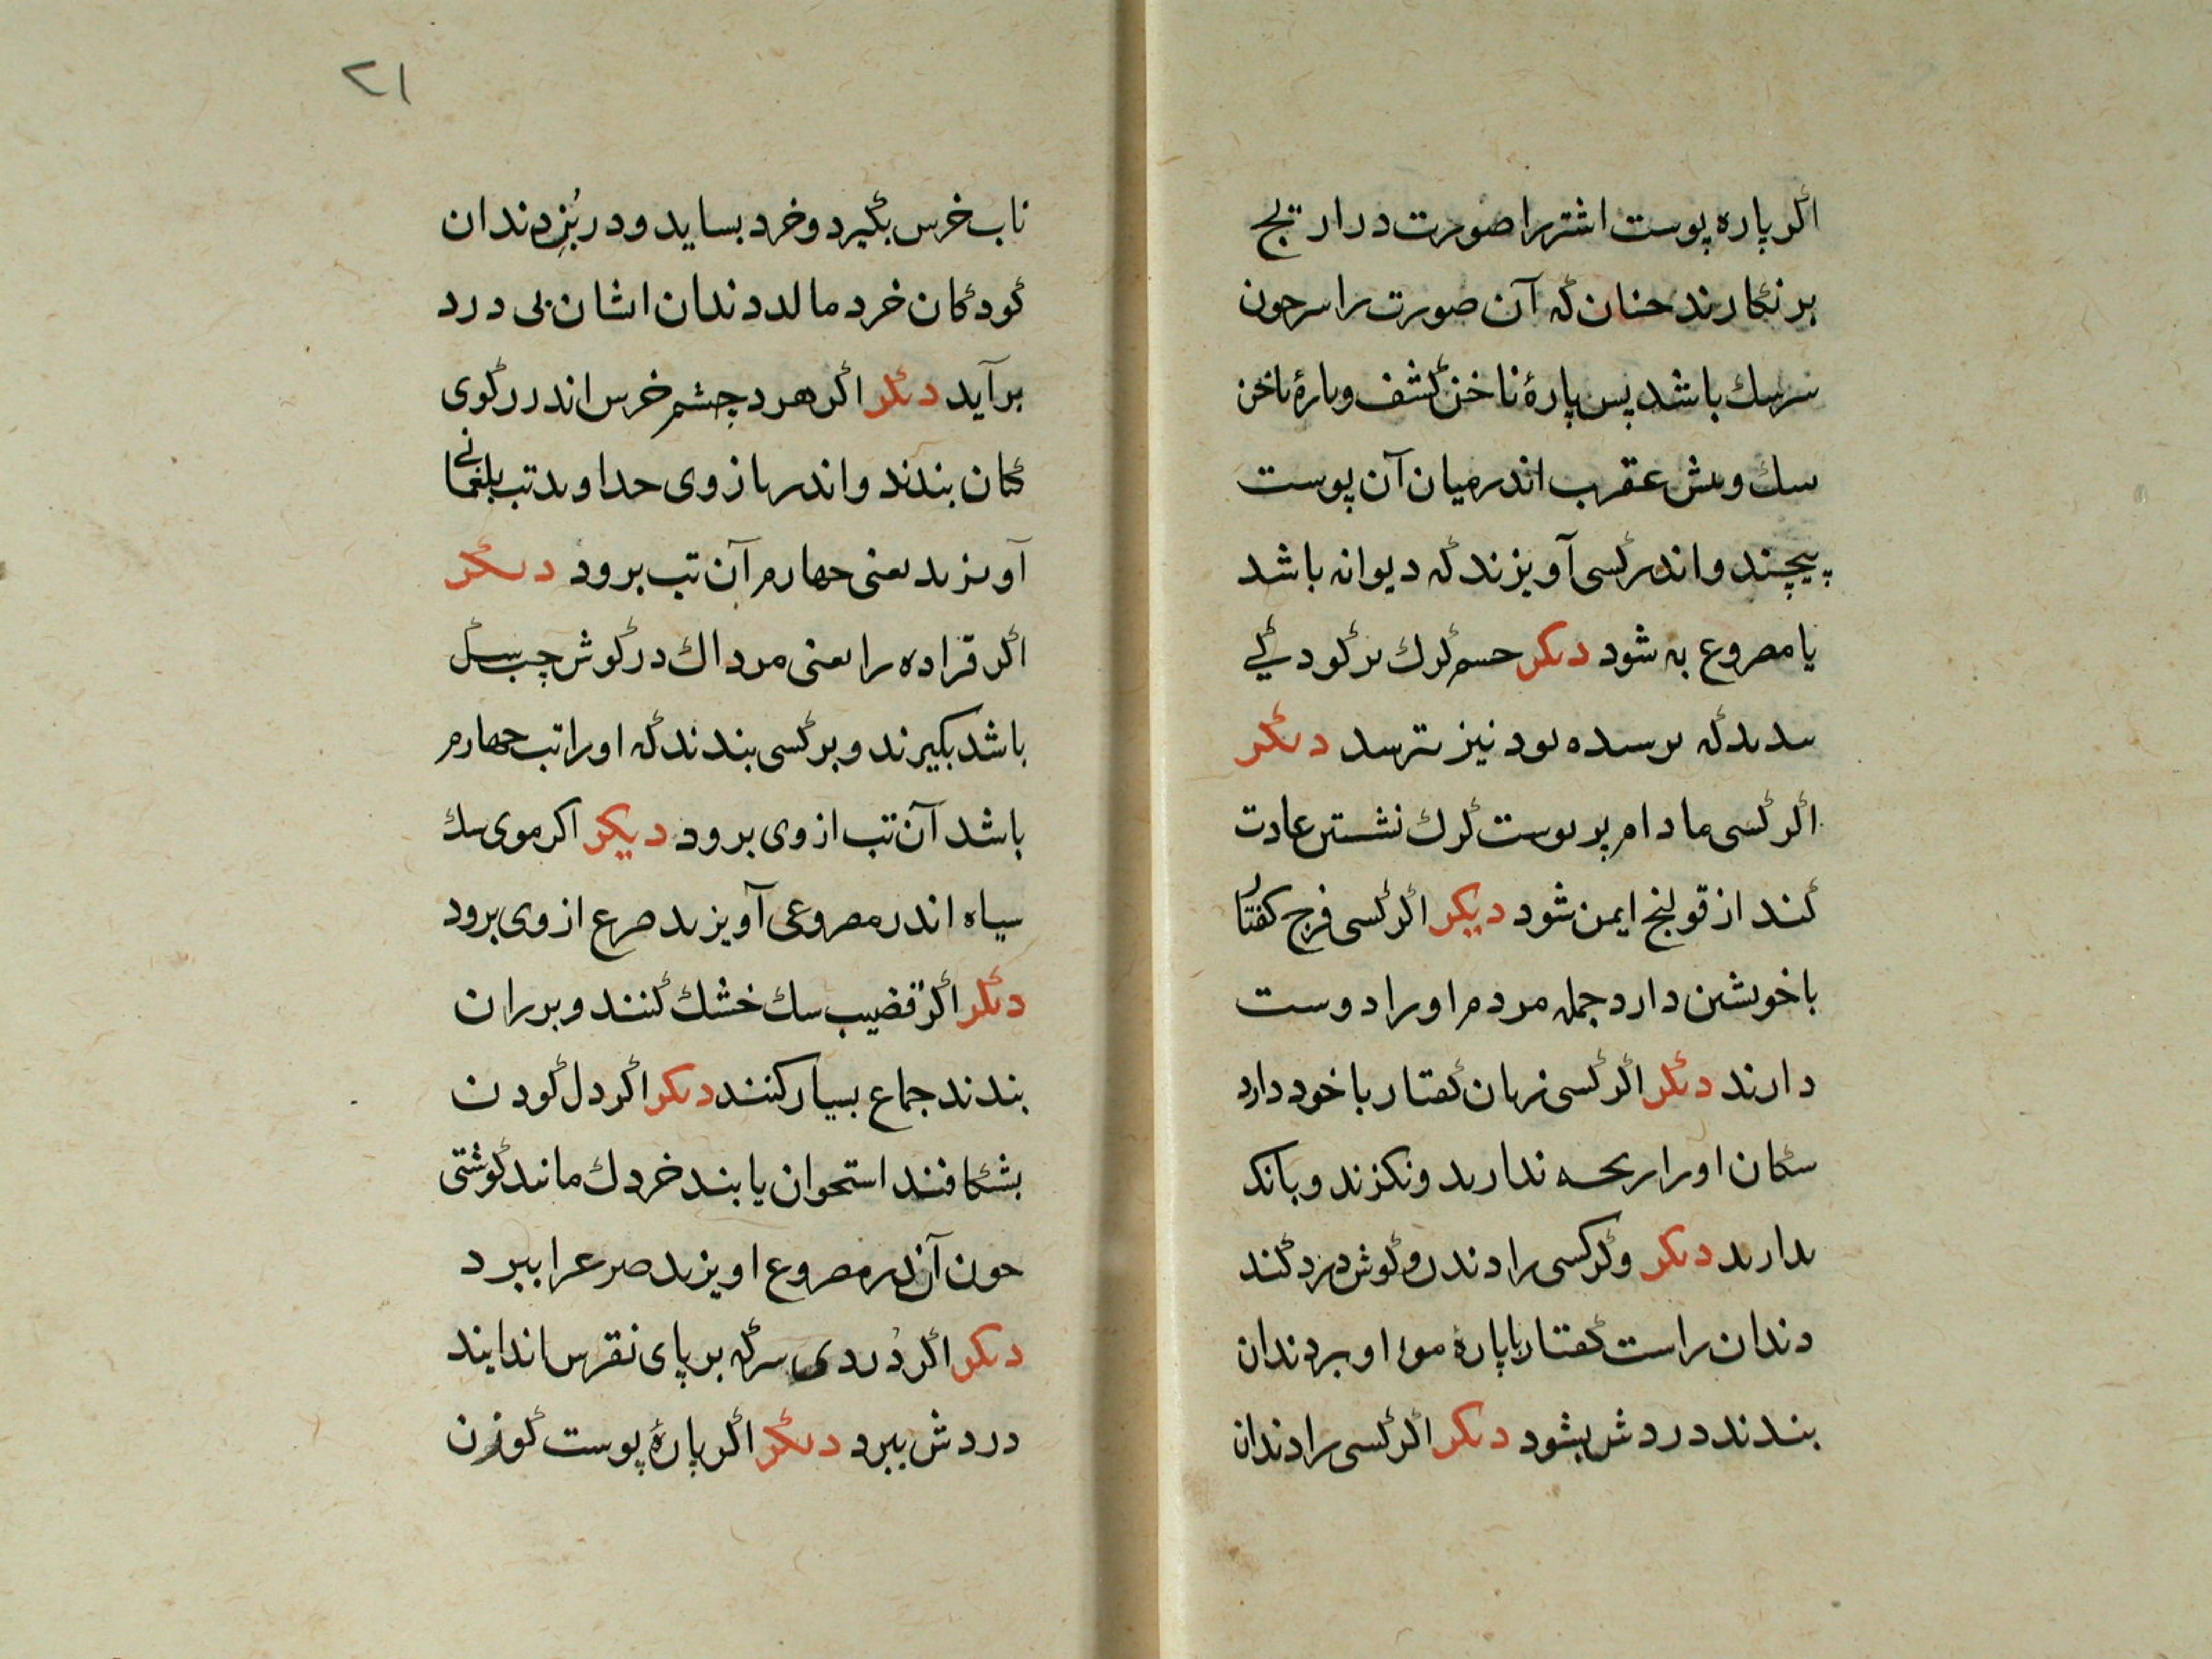 اگر پاره پوست اشتر را صورت درارتج
بر نگارند چنان که آن صورت را سر چون
سر سك باشد پس پارهٔ ناخن کشف و پارهٔ ناخن
سك و نیش عقرب اندر میان آن پوست
پیچند و اندر کسی آویزند که دیوانه باشد
یا مصروع به شود دیکر چشم کرك بر کودکی
بندند که ترسیده بود نیز نترسد دیکر
اکر کسی مادام بر پوست کرك نشستن عادت
کند از قولنج ایمن شود دیکر اکر کسی فرج کفتار
با خویشتن دارد جمله مردم او را دوست
دارند دیکر اکر کسی زبان کفتار با خود دارد
سکان او را رنجه ندارند و نکزند و بانک
ندارند دیکر وکر کسی را دندان و کوش درد کند
دندان راست کفتار با پارهٔ موی او بر دندان
بندند دردش بشود دیکر اکر کسی را دندان
۲۱
ناب خرس بکیرد و خرد بساید و در بُنِ دندان
کودکان خرد مالد دندان اشان بی درد
برآید دیکر اکر هر دو چشم خرس اندر رکوی
کتان بندند و اندر بازوی خداوند تب بلغمانی
آویزند یعنی چهارم آن تب برود دیکر
اکر قراده را یعنی مرداك در کوش چپ سك
باشد بکیرند و بر کسی بندند که او را تب چهارم
باشد آن تب از وی برود دیکر اکر موی سك
سیاه اندر مصروعی آویزند صرع از وی برود
دیکر اکر قضیب سك خشك کنند و بر ران
بندند جماع بسیار کنند دیکر اکر دل کوزن
بشکافند استخوان یابند خردك مانند کوشتی
چون آن اندر مصروع اویزند صرع را ببرد
دیکر اکر دُردی سرکه بر پای نقرس اندایند
دردش ببرد دیکر اکر پارهٔ پوست کوزن